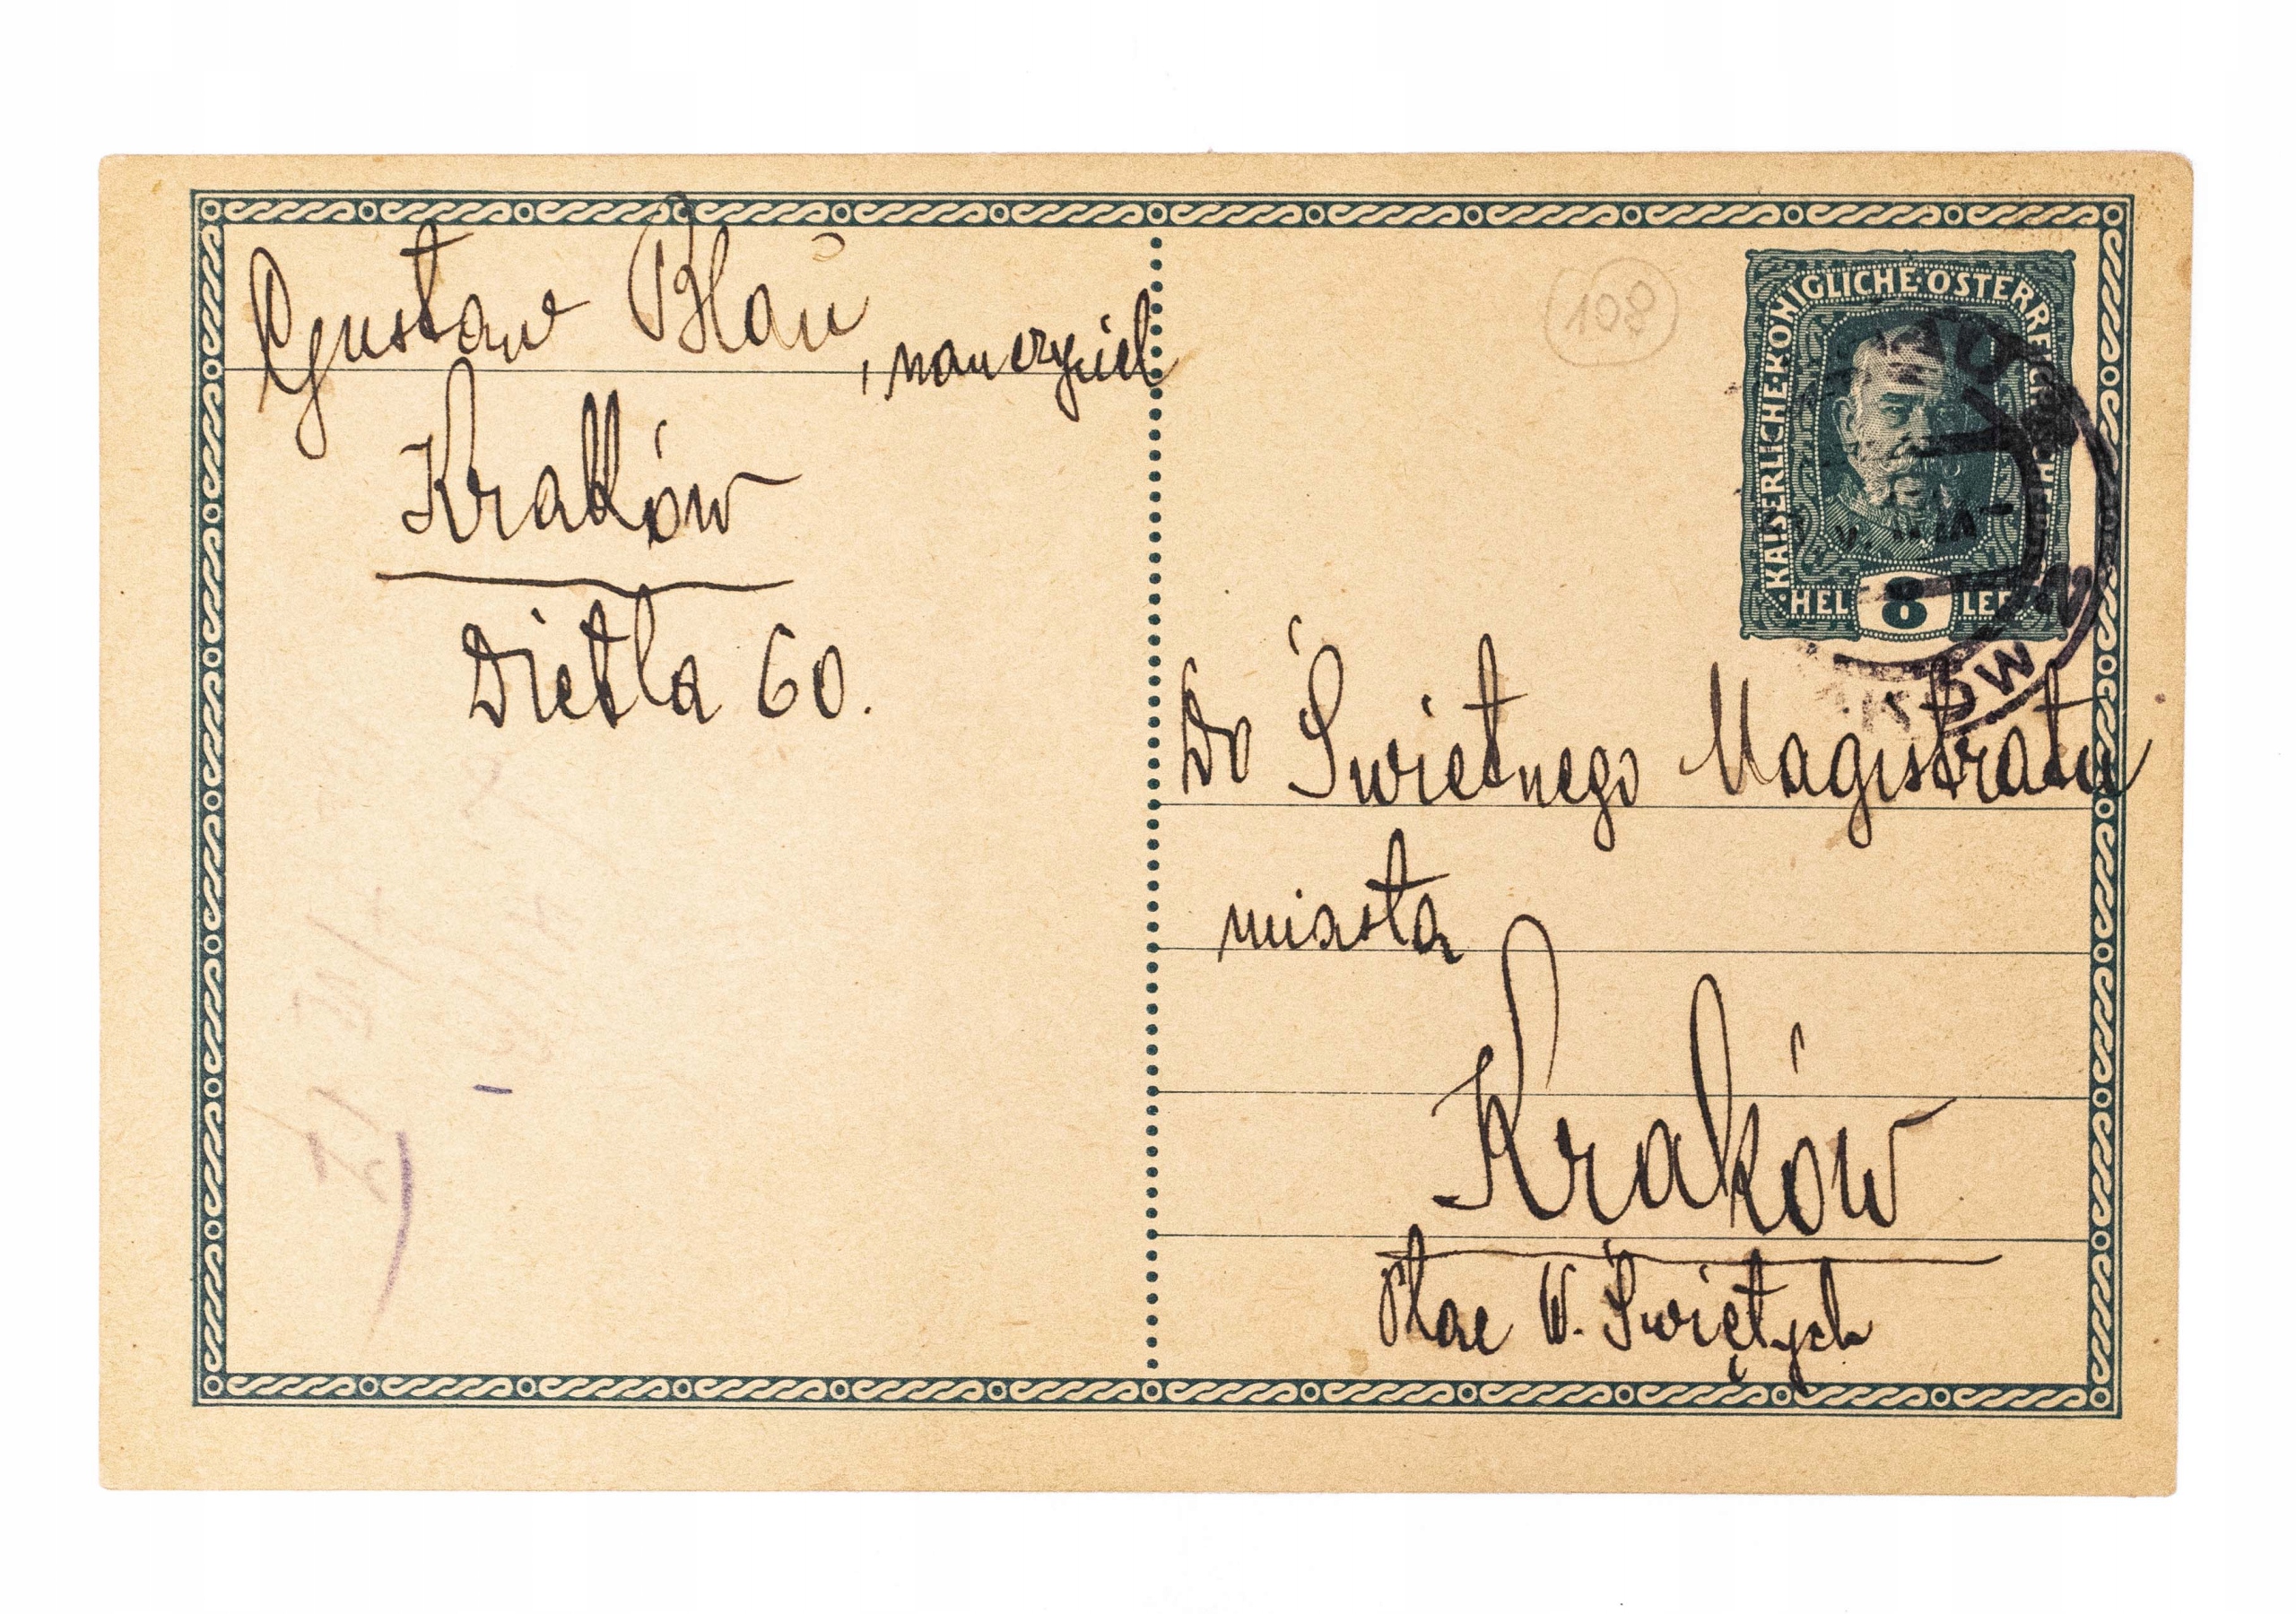 Gustaw Blau, nauczyciel
Kraków
Dietla 60.
108
KAISERLICHE KÖNIGLICHE ÖSTERREICHISCHE
8
HELLER
Do Świetnego Magistratu
miasta
Kraków
Plac W. Świętych